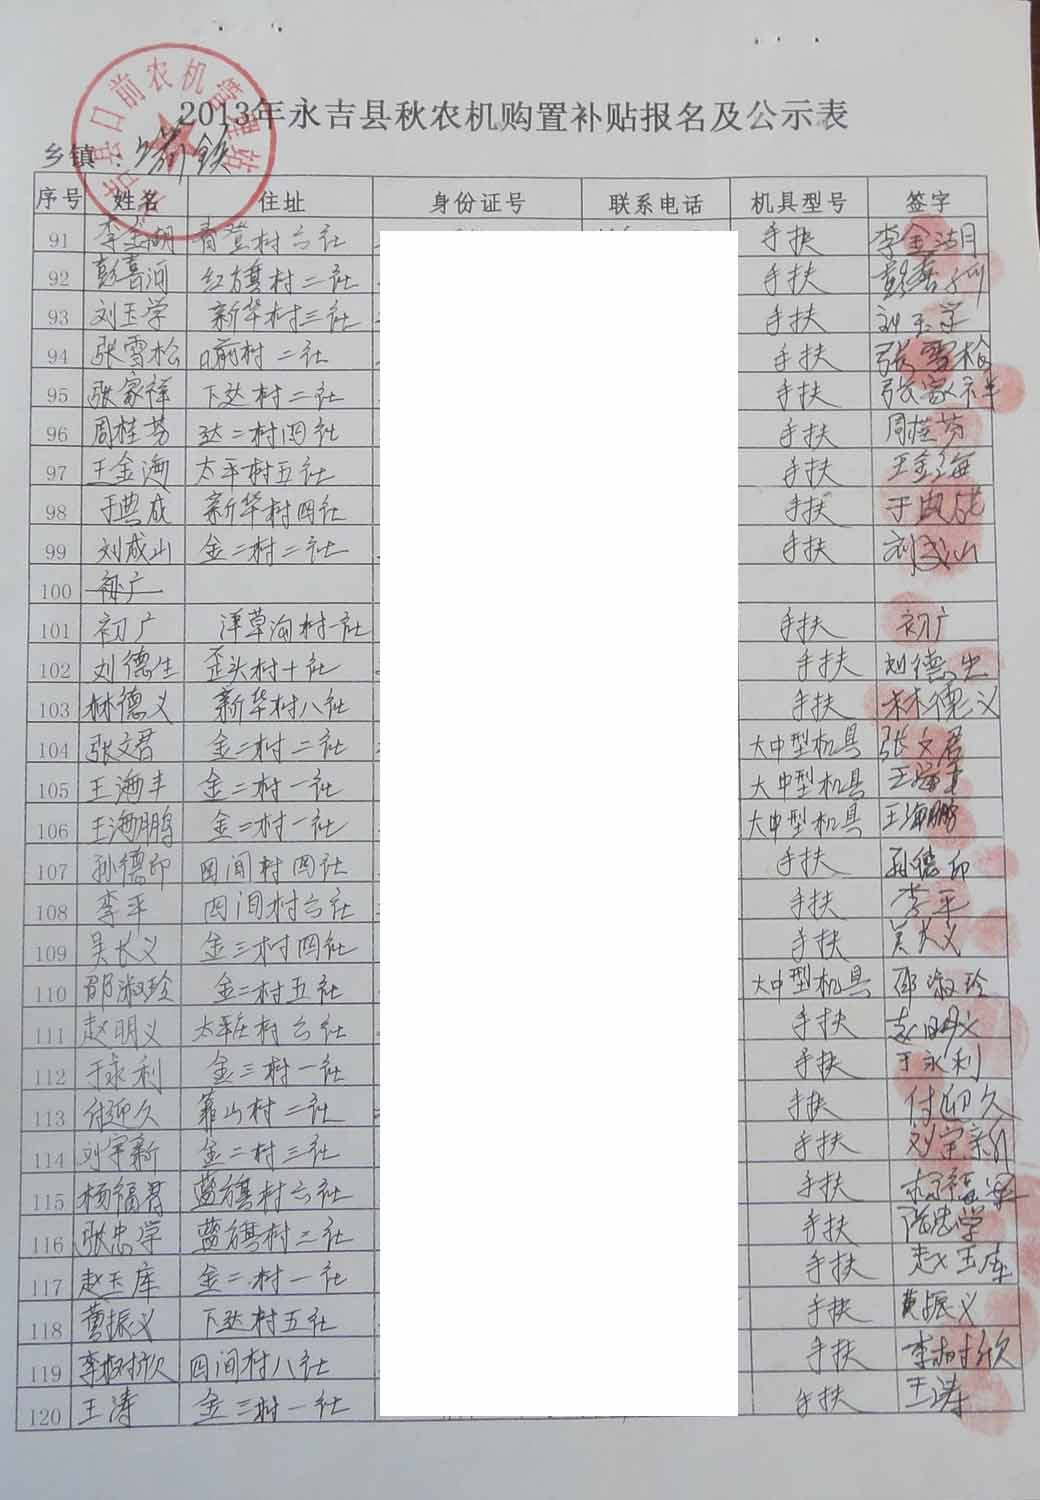 2013年永吉县秋农机购置补贴报名及公示表
县口前农机管理站
乡镇：口前镇
序号 姓名 住址 身份证号 联系电话 机具型号 签字
91 李金湖 春登村六社 手扶 李金湖
92 彭喜河 红旗村二社 手扶 彭喜河
93 刘玉学 新华村三社 手扶 刘玉学
94 张雪松 口前村二社 手扶 张雪松
95 张家祥 下达村二社 手扶 张家祥
96 周桂芬 达二村四社 手扶 周桂芬
97 王金海 太平村五社 手扶 王金海
98 于典成 新华村四社 手扶 于典成
99 刘成山 金二村二社 手扶 刘成山
100
101 初广 洋草沟村一社 手扶 初广
102 刘德生 歪头村十社 手扶 刘德生
103 林德义 新华村八社 手扶 林德义
104 张文君 金二村二社 大中型机具 张文君
105 王海丰 金二村一社 大中型机具 王海丰
106 王海鹏 金二村一社 大中型机具 王海鹏
107 孙德印 四间村四社 手扶 孙德印
108 李平 四间村六社 手扶 李平
109 吴长义 金三村四社 手扶 吴长义
110 邵淑玲 金二村五社 大中型机具 邵淑玲
111 赵明义 太平庄村六社 手扶 赵明义
112 于永利 金三村一社 手扶 于永利
113 付迎久 靠山村二社 手扶 付迎久
114 刘宇新 金二村三社 手扶 刘宇新
115 杨福君 蓝旗村六社 手扶 杨福君
116 张忠学 蓝旗村三社 手扶 张忠学
117 赵玉库 金二村一社 手扶 赵玉库
118 黄振义 下达村五社 手扶 黄振义
119 李树欣 四间村八社 手扶 李树欣
120 王涛 金三村一社 手扶 王涛